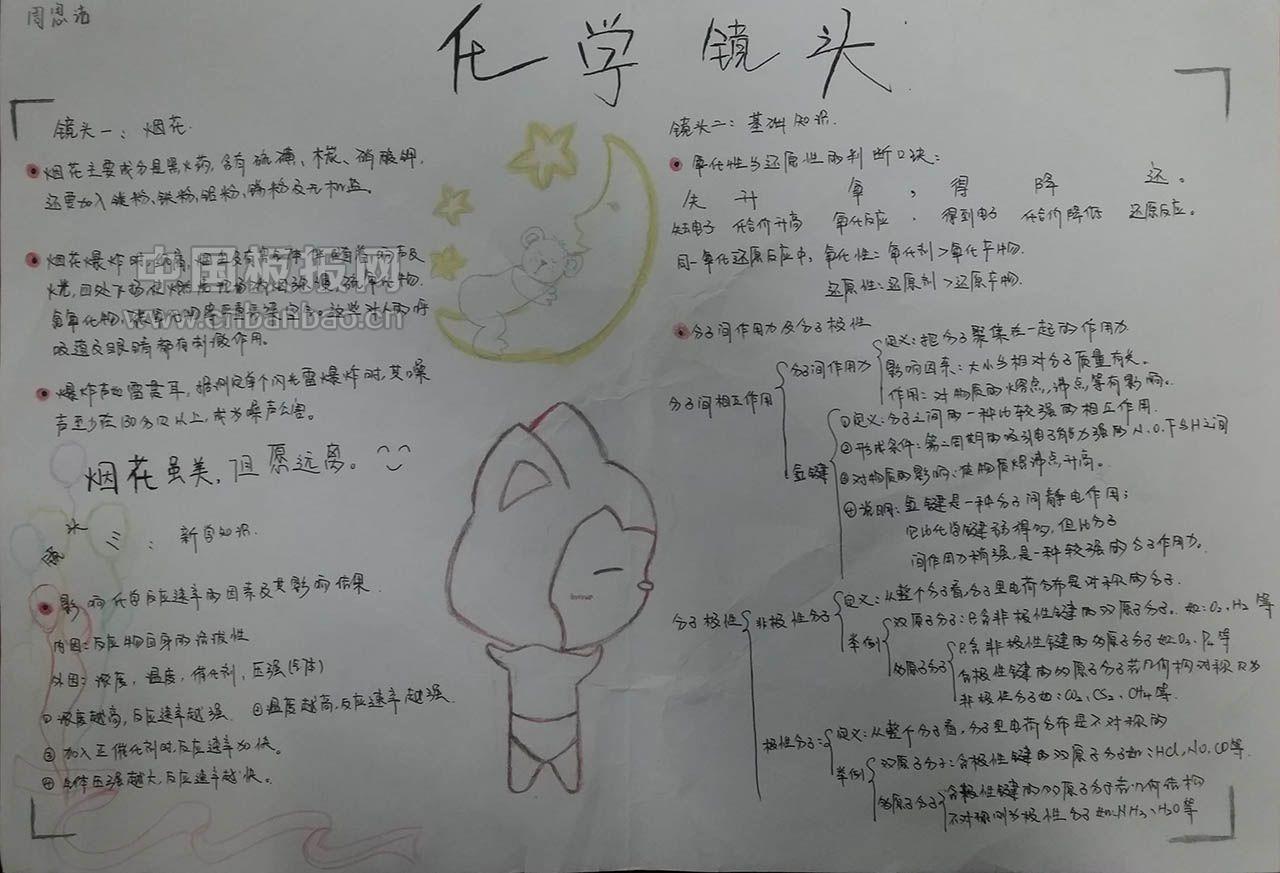 周恩浩
化学镜头
镜头一：烟花.
烟花主要成分是黑火药,含有硫磺、木炭、硝酸钾,
还要加入镁粉、铁粉、铝粉、锑粉及无机盐。
烟花爆炸时
火光,
氮氧化物、碳氧化物等 。这些对人的呼
吸道及眼睛都有刺激作用。
爆炸声如雷贯耳,据测定单个闪光雷爆炸时,其噪
声至少在130分贝以上,成为噪声公害。
烟花虽美,但愿远离。
镜头二：基础知识.
氧化性与还原性的判断口决：
失 升 氧 ， 得 降 还 。
失去电子 化合价升高 氧化反应 ， 得到电子 化合价降低 还原反应。
同一氧化还原反应中，氧化性：氧化剂＞氧化产物.
还原性：还原剂＞还原产物.
分子间作用力及分子极性
分子间相互作用
分子间作用力
定义：把分子聚集在一起的作用力
影响因素：大小与相对分子质量有关。
作用：对物质的熔点,沸点,等有影响。
氢键
①定义：分子之间的一种比较强的相互作用.
②形成条件：第二周期的吸引电子能力强的N.O.F与H之间
③对物质的影响：使物质熔沸点升高。
④说明：氢键是一种分子间静电作用；
它比化学键弱得多,但比分子
间作用力稍强,是一种较强的分子作用力。
分子极性
非极性分子
定义：从整个分子看,分子里电荷分布是对称的分子.
举例
双原子分子：只含非极性键的双原子分子。如：O₂、H₂ 等
多原子分子
只含非极性键的多原子分子如O₃、P₄等
含极性键的多原子分子若几何构对称 为
非极性分子如：CO₂、CS₂、CH₄等.
极性分子：
定义：从整个分子看,分子里电荷分布是不对称的
举例
双原子分子：含极性键的双原子分子如：HCl,NO.CO等.
多原子分子
含极性键的多原子分子若几何结构
不对称则为极性分子如NH₃、H₂O等
镜头三：新学知识.
影响化学反应速率的因素及其影响结果.
内因：反应物自身的活泼性
外因：浓度，温度，催化剂，压强(气体)
①浓度越高,反应速率越强. ②温度越高,反应速率越强.
③加入正催化剂时,反应速率加快。
④气体压强越大,反应速率越快。
中国板报网
www.cnbanbao.cn